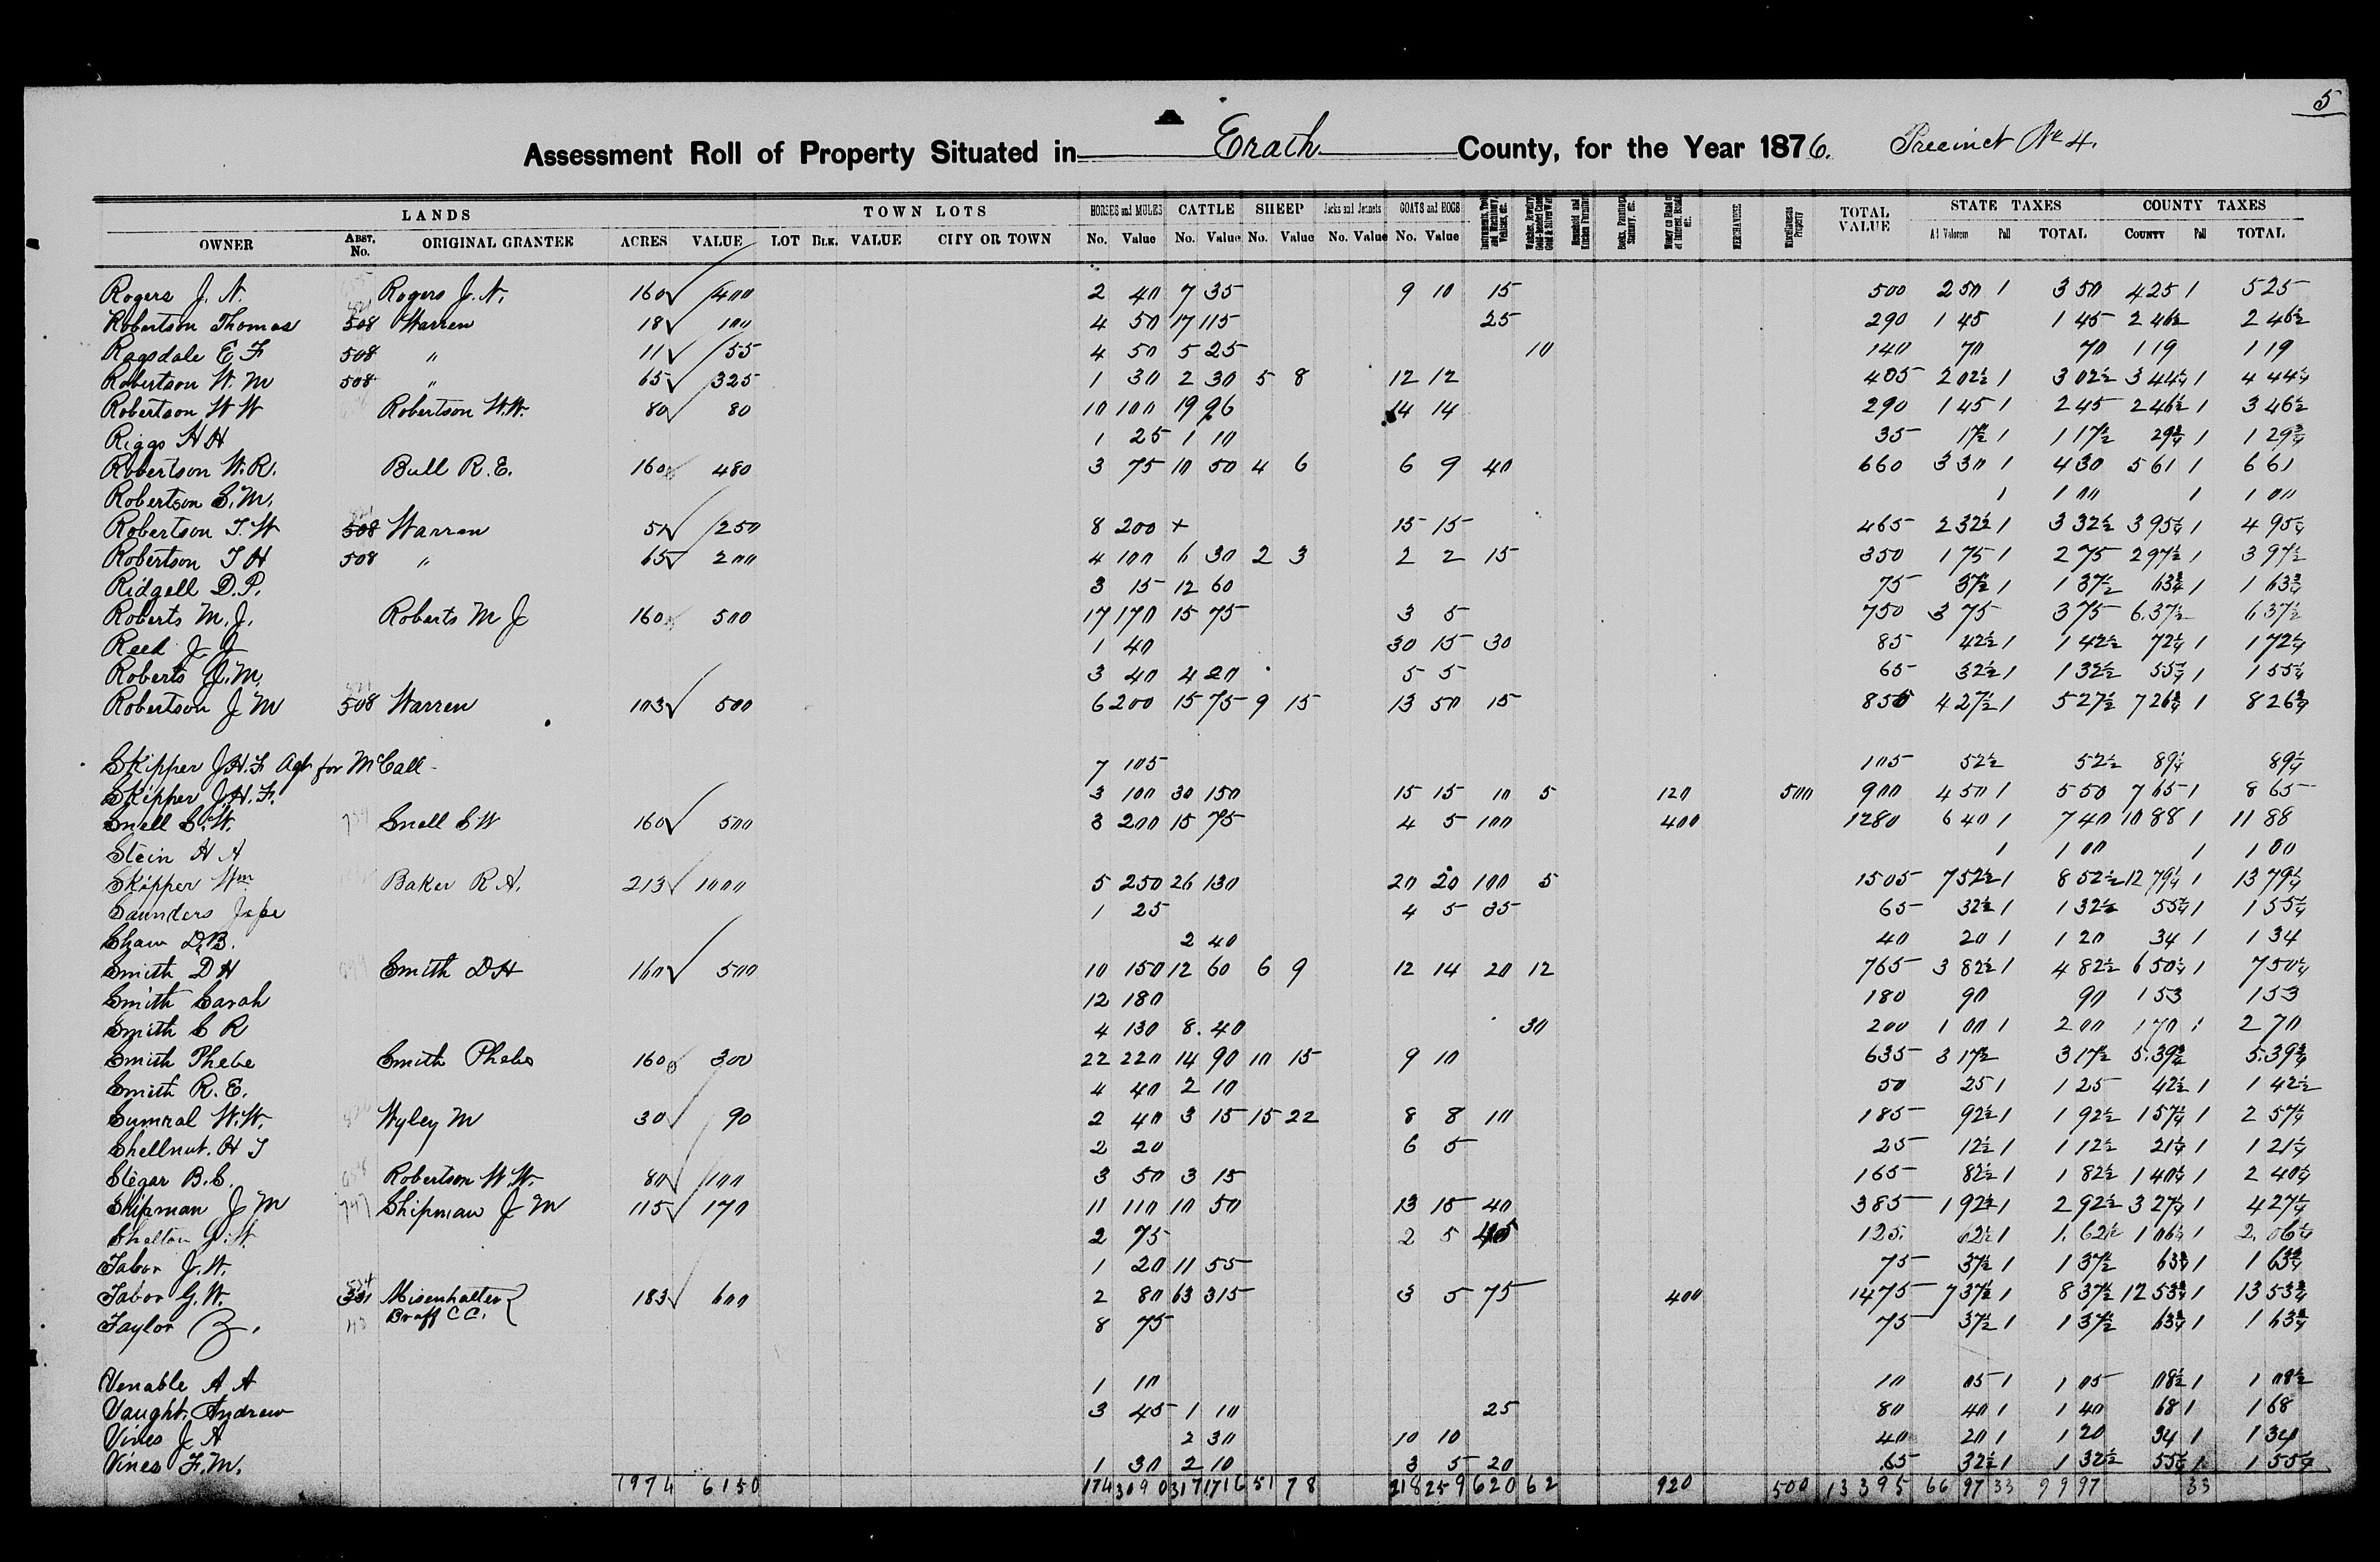 5
Assessment Roll of Property Situated in Erath County, for the Year 1876. Precinct No 4.
LANDS TOWN LOTS HORSES and MULES CATTLE SHEEP Jacks and Jennets GOATS and HOGS MERCHANDISE Miscellaneous Property TOTAL VALUE STATE TAXES COUNTY TAXES
OWNER ABST. No. ORIGINAL GRANTEE ACRES VALUE LOT BLK. VALUE CITY OR TOWN No. Value No. Value No. Value No. Value No. Value Ad Valorem Poll TOTAL COUNTY Poll TOTAL
Rogers J. N. Rogers J. N. 160 400 2 40 7 35 9 10 15 500 2 50 1 3 50 4 25 1 5 25
Robertson Thomas 508 Warren 18 100 4 50 17 115 25 290 1 45 1 45 2 46½ 2 46½
Ragsdale E F 508 " 11 55 4 50 5 25 10 140 70 70 1 19 1 19
Robertson W. M 508 " 65 325 1 30 2 30 5 8 12 12 405 2 02½ 1 3 02½ 3 44¼ 1 4 44¼
Robertson W W Robertson W.W. 80 80 10 100 19 96 14 14 290 1 45 1 2 45 2 46½ 1 3 46½
Riggs H H 1 25 1 10 35 17½ 1 1 17½ 29¾ 1 1 29¾
Robertson W. R. Bull R. E. 160 480 3 75 10 50 4 6 6 9 40 660 3 30 1 4 30 5 61 1 6 61
Robertson S. M. 1 1 00 1 1 00
Robertson T. W 508 Warren 50 250 8 200 + 15 15 465 2 32½ 1 3 32½ 3 95¼ 1 4 95¼
Robertson T H 508 " 65 200 4 100 6 30 2 3 2 2 15 350 1 75 1 2 75 2 97½ 1 3 97½
Ridgell D. P. 3 15 12 60 75 37½ 1 1 37½ 63¾ 1 1 63¾
Roberts M. J. Roberts M J 160 500 17 170 15 75 3 5 750 3 75 3 75 6.37½ 6 37½
Reed J. J 1 40 30 15 30 85 42½ 1 1 42½ 72¼ 1 1 72¼
Roberts J. M. 3 40 4 20 5 5 65 32½ 1 1 32½ 55¼ 1 1 55¼
Robertson J M 508 Warren 103 500 6 200 15 75 9 15 13 50 15 855 4 27½ 1 5 27½ 7 26¾ 1 8 26¾
Skipper J.H.F Agt for McCall 7 105 105 52½ 52½ 89¼ 89¼
Skipper J. H. F. 3 100 30 150 15 15 10 5 120 500 900 4 50 1 5 50 7 65 1 8 65
Snell S. W. Snell S W 160 500 3 200 15 75 4 5 100 400 1280 6 40 1 7 40 10 88 1 11 88
Stein H A 1 1 00 1 1 00
Skipper Wm Baker R A. 213 1000 5 250 26 130 20 20 100 5 1505 7 52½ 1 8 52½ 12 79¼ 1 13 79¼
Saunders 1 25 4 5 35 65 32½ 1 1 32½ 55¼ 1 1 55¼
Shaw D. B. 2 40 40 20 1 1 20 34 1 1 34
Smith D H Smith D H 160 500 10 150 12 60 6 9 12 14 20 12 765 3 82½ 1 4 82½ 6 50¼ 1 7 50¼
Smith Sarah 12 180 180 90 90 1 53 1 53
Smith S R 4 130 8 40 30 200 1 00 1 2 00 1 70 1 2 70
Smith Phebe Smith Phebe 160 300 22 220 14 90 10 15 9 10 635 3 17½ 3 17½ 5.39¾ 5.39¾
Smith R. E. 4 40 2 10 50 25 1 1 25 42½ 1 1 42½
Sumral W. W. Wyley M 30 90 2 40 3 15 15 22 8 8 10 185 92½ 1 1 92½ 1 57¼ 1 2 57¼
Shellnut. H T 2 20 6 5 25 12½ 1 1 12½ 21¼ 1 1 21¼
Slegar B. S. Robertson W. W. 80 100 3 50 3 15 165 82½ 1 1 82½ 1 40¼ 1 2 40¼
Shipman J M 747 Shipman J M 115 170 11 110 10 50 13 15 40 385 1 92½ 1 2 92½ 3 27¼ 1 4 27¼
Shelton J. W. 2 75 2 5 45 125 62½ 1 1.62½ 1 06¼ 1 2.06¼
Tabor J. W. 1 20 11 55 75 37½ 1 1 37½ 63¾ 1 1 63¾
Tabor G. W. 534 Misenhalter 183 600 2 80 63 315 3 5 75 400 1475 7 37½ 1 8 37½ 12 53¾ 1 13 53¾
Braff C C.
Taylor Z. 8 75 75 37½ 1 1 37½ 63¾ 1 1 63¾
Venable A A 1 10 10 05 1 1 05 08½ 1 1 08½
Vaught. Andrew 3 45 1 10 25 80 40 1 1 40 68 1 1 68
Vines J A 2 30 10 10 40 20 1 1 20 34 1 1 34
Vines F. M. 1 30 2 10 3 5 20 65 32½ 1 1 32½ 55¼ 1 1 55¼
1974 6150 174 3090 317 1716 51 78 218 259 620 62 920 500 13395 66 97 33 99 97 33